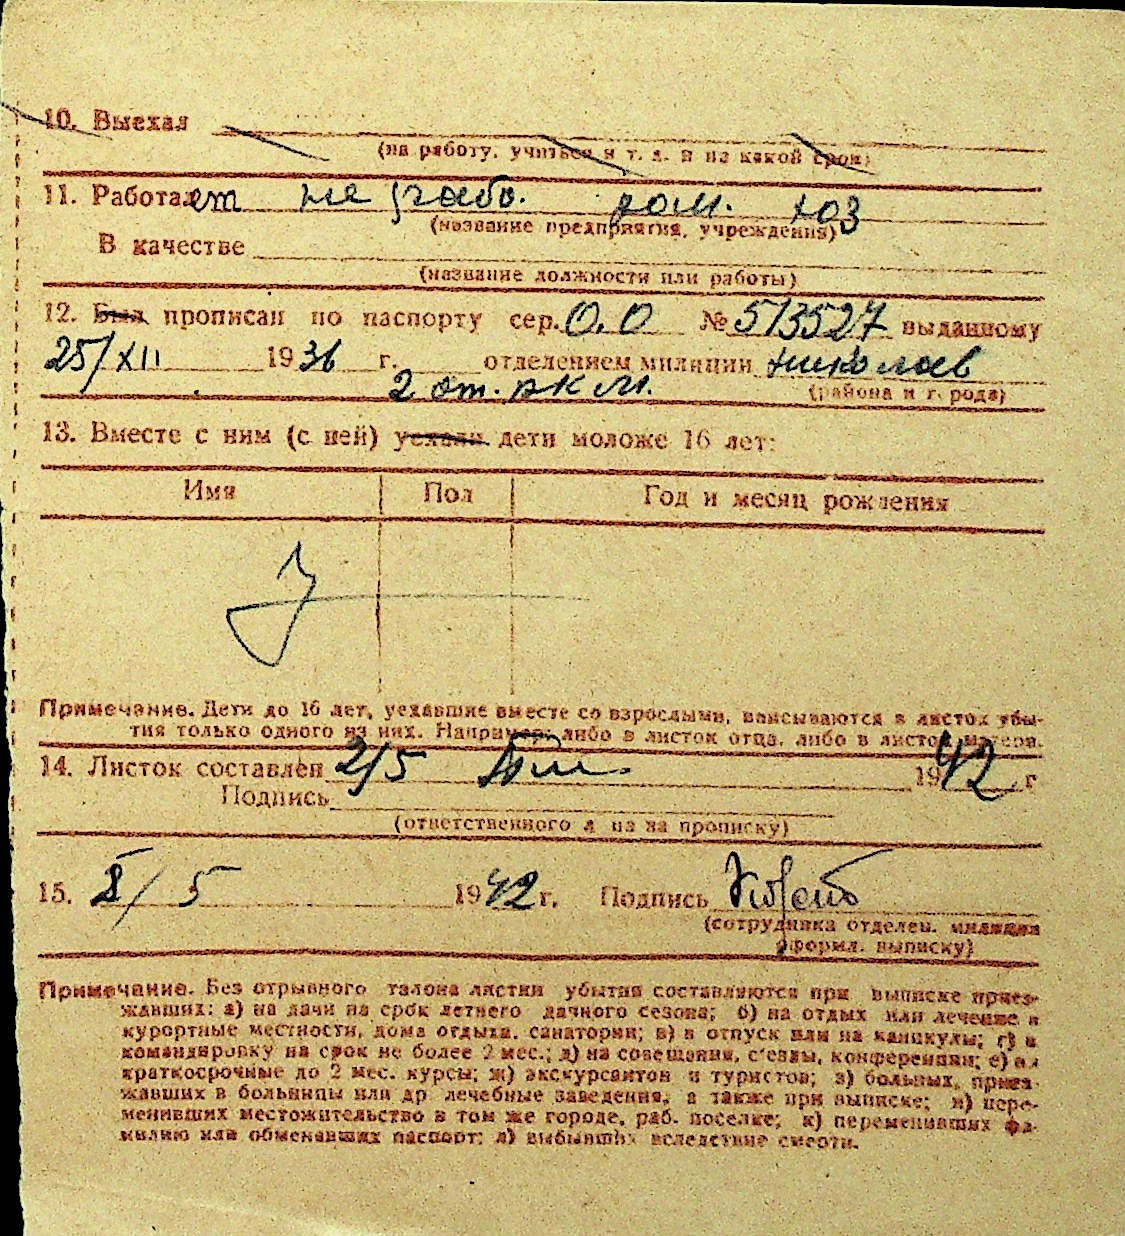 10. Выехал
(на работу, учиться и т. д. и на какой срок)
11. Работает не рабо. дом. хоз
(название предприятия, учреждения)
В качестве
(название должности или работы)
12. Был прописан по паспорту сер. О.О № 513527 выданному
25/XII 1936 г. отделением милиции Николаев
2 от. РКМ. (района и города)
13. Вместе с ним (с ней) уехали дети моложе 16 лет:
Имя Пол Год и месяц рождения
Примечание. Дети до 16 лет, уехавшие вместе со взрослыми, вписываются в листок убы-
тия только одного из них. Например: либо в листок отца, либо в листок матери.
14. Листок составлен 2/5 1942 г
Подпись
(ответственного лица за прописку)
15. 2/5 1942 г. Подпись
(сотрудника отделен. милиции
оформл. выписку)
Примечание. Без отрывного талона листки убытия составляются при выписке приез-
жавших: а) на дачи на срок летнего дачного сезона; б) на отдых или лечение в
курортные местности, дома отдыха, санатории; в) в отпуск или на каникулы; г) в
командировку на срок не более 2 мес.; д) на совещания, съезды, конференции; е) на
краткосрочные до 2 мес. курсы; ж) экскурсантов и туристов; з) больных, приез-
жавших в больницы или др. лечебные заведения, а также при выписке; и) пере-
менивших местожительство в том же городе, раб. поселке; к) переменивших фа-
милию или обменявших паспорт; л) выбывших вследствие смерти.